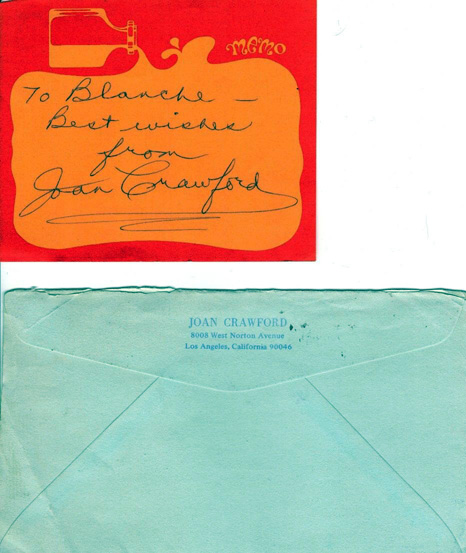 MEMO
To Blanche —
Best wishes
from
Joan Crawford
JOAN CRAWFORD
8008 West Norton Avenue
Los Angeles, California 90046